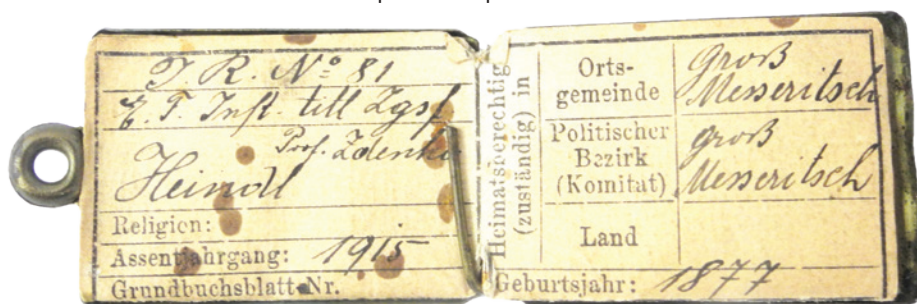 I. R. No 81
E. F. Inft. tit. Zgsf
Prof. Zdenko
Heindl
Religion:
Assentjahrgang: 1915
Grundbuchsblatt-Nr.
Heimatsberechtig
(zuständig) in
Orts-
gemeinde
Groß
Messeritsch
Politischer
Bezirk
(Komitat)
Groß
Messeritsch
Land
Geburtsjahr: 1877